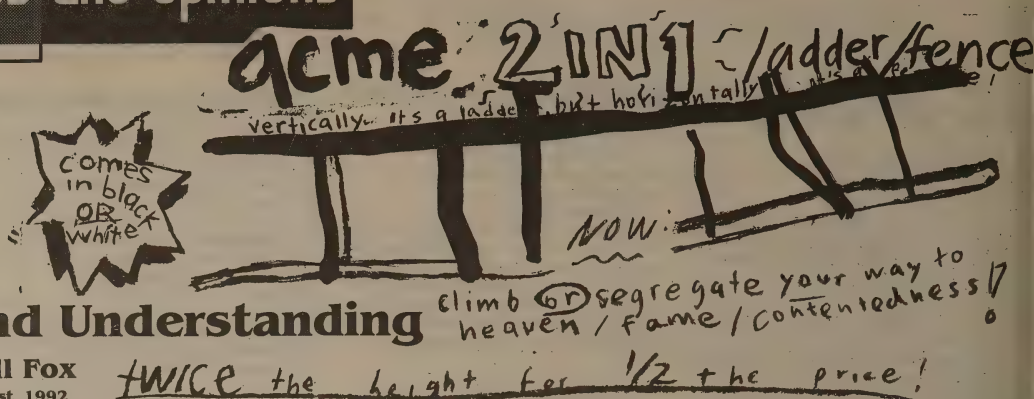 and opinions
acme 2IN1 ladder/fence
vertically it's a ladder, but horizontally it's a fence!
comes
in black
OR
white
NOW:
climb or segregate your way to
heaven / fame / contentedness!
nd Understanding
ll Fox
st, 1992
twice the height for 1/2 the price!